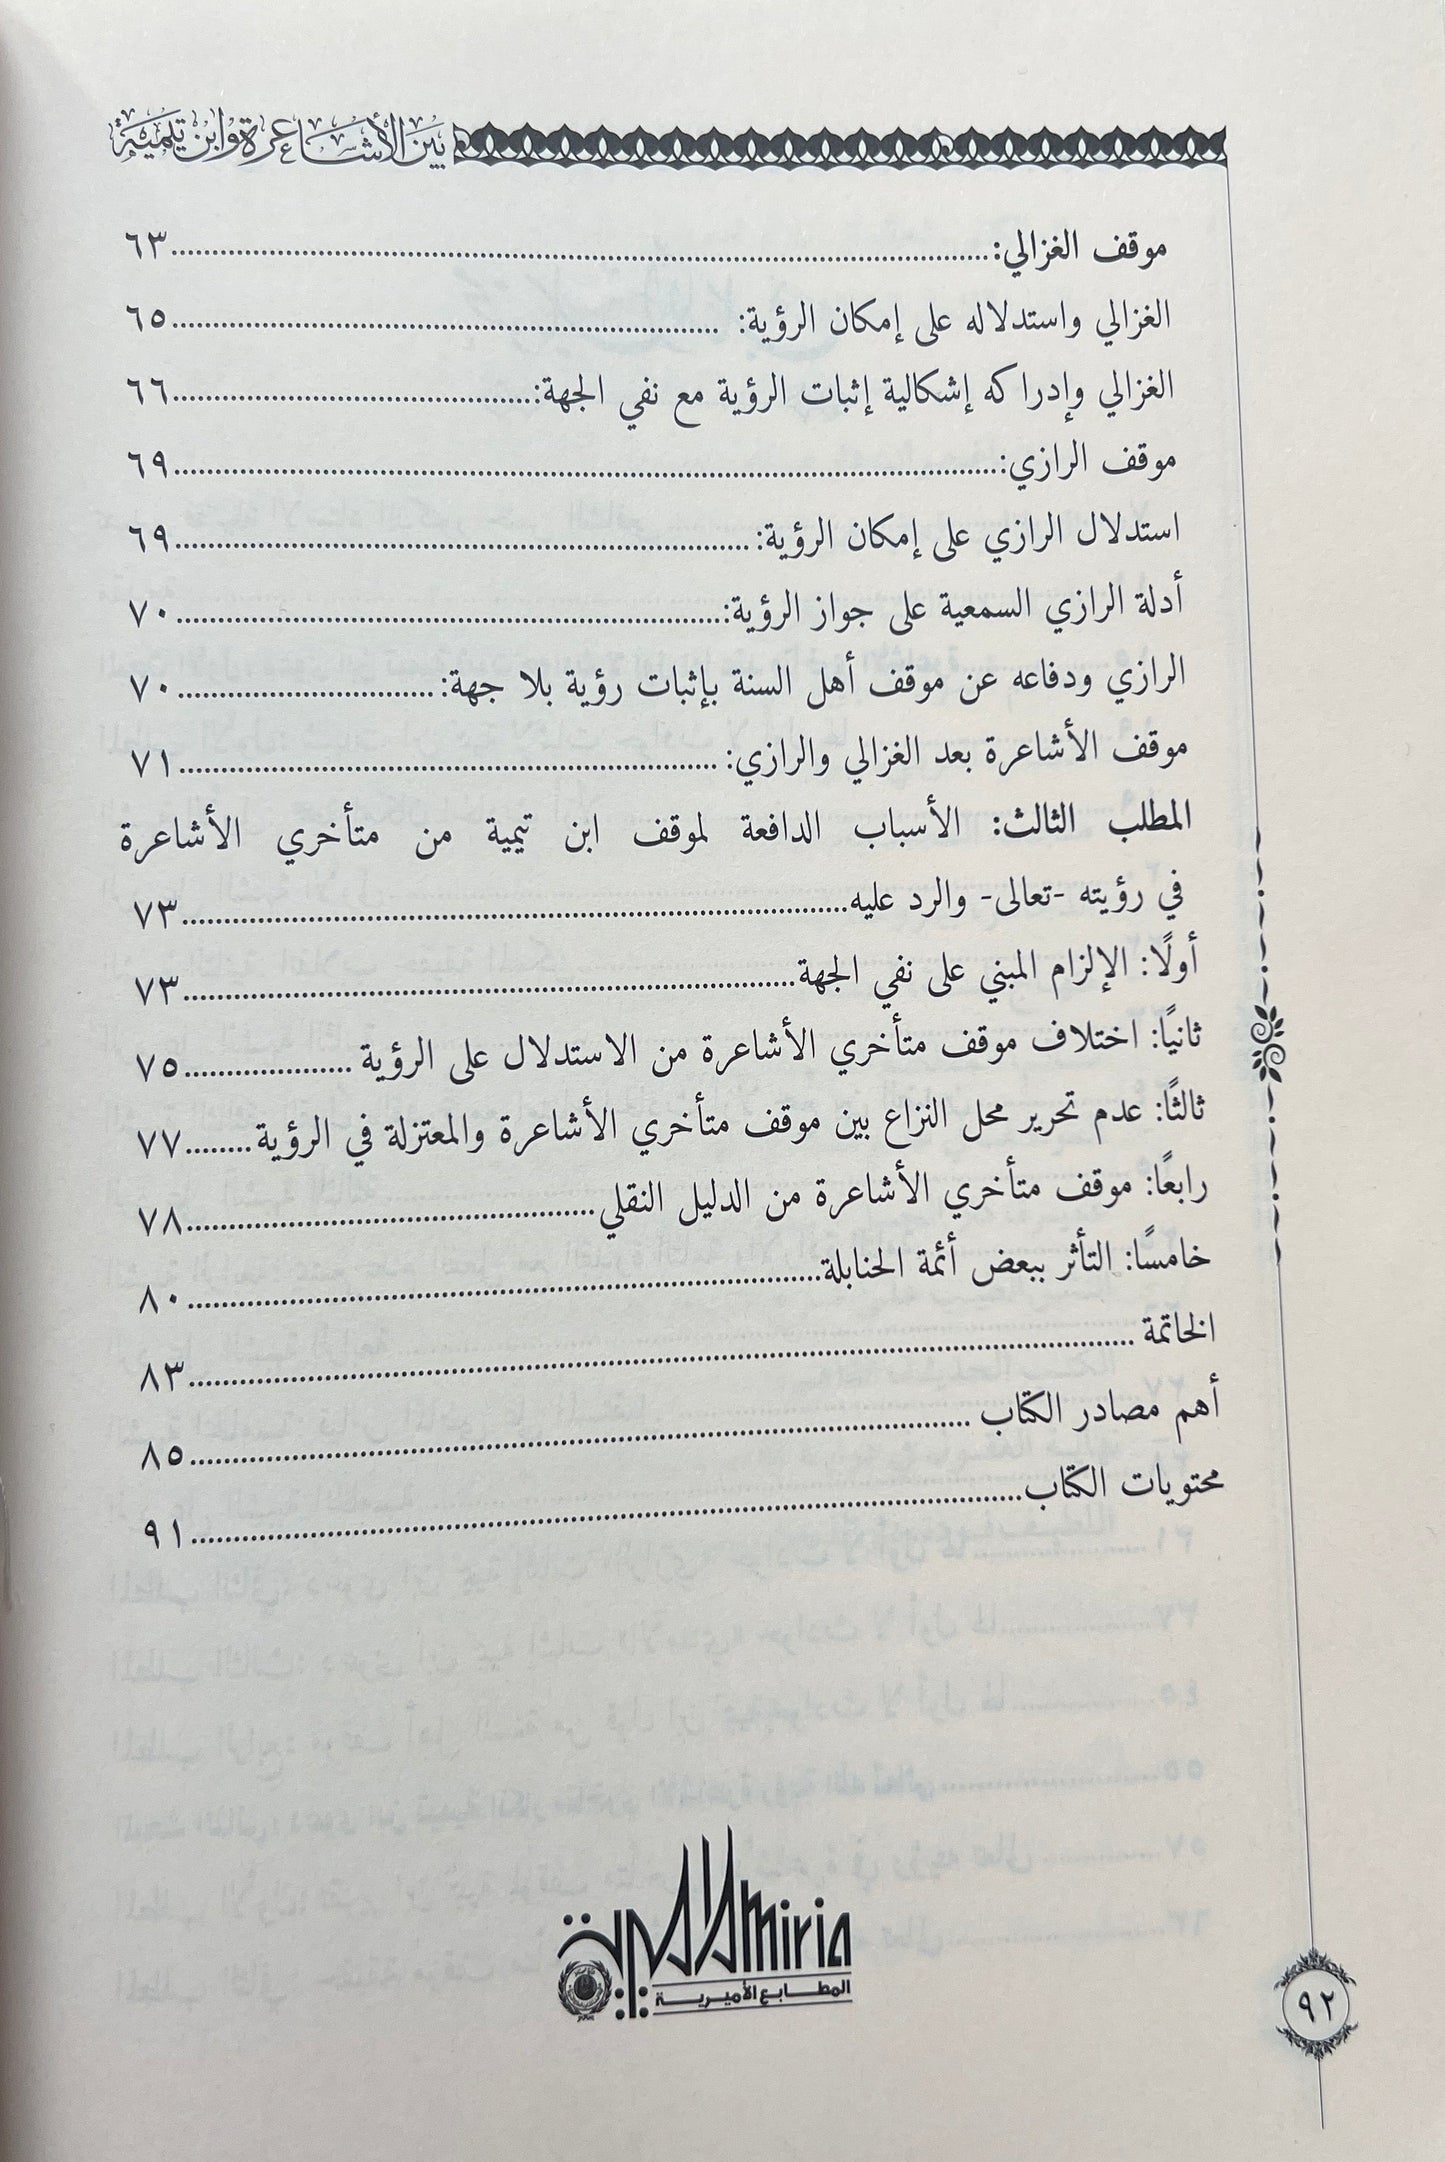 بين الأشاعرة وابن تيمية
موقف الغزالي:........................ ٦٣
الغزالي واستدلاله على إمكان الرؤية: ........................ ٦٥
الغزالي وإدراكه إشكالية إثبات الرؤية مع نفي الجهة:........................ ٦٦
موقف الرازي:........................ ٦٩
استدلال الرازي على إمكان الرؤية:........................ ٦٩
أدلة الرازي السمعية على جواز الرؤية:........................ ٧٠
الرازي ودفاعه عن موقف أهل السنة بإثبات رؤية بلا جهة:........................ ٧٠
موقف الأشاعرة بعد الغزالي والرازي:........................ ٧١
المطلب الثالث: الأسباب الدافعة لموقف ابن تيمية من متأخري الأشاعرة
في رؤيته -تعالى- والرد عليه........................ ٧٣
أولًا: الإلزام المبني على نفي الجهة........................ ٧٣
ثانيًا: اختلاف موقف متأخري الأشاعرة من الاستدلال على الرؤية ........................ ٧٥
ثالثًا: عدم تحرير محل النزاع بين موقف متأخري الأشاعرة والمعتزلة في الرؤية........ ٧٧
رابعًا: موقف متأخري الأشاعرة من الدليل النقلي........................ ٧٨
خامسًا: التأثر ببعض أئمة الحنابلة........................ ٨٠
الخاتمة ........................ ٨٣
أهم مصادر الكتاب ........................ ٨٥
محتويات الكتاب........................ ٩١
الأميرية Al Amiria
المطابع الأميرية
٩٢